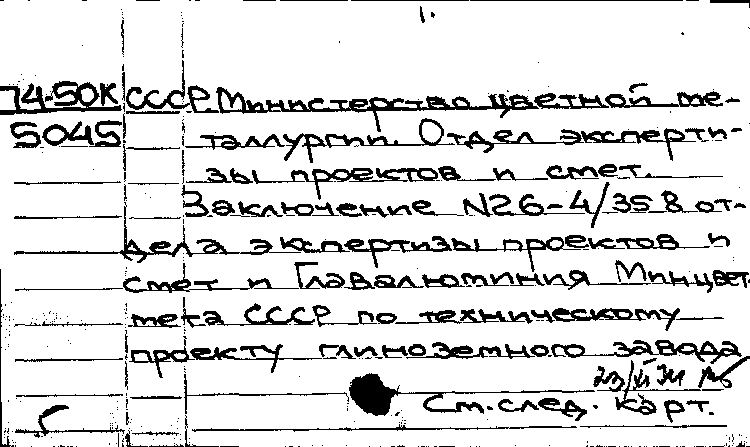 1.
74-50К СССР. Министерство цветной ме-
5045 таллургии. Отдел эксперти-
зы проектов и смет.
Заключение N26-4/358 от-
дела экспертизы проектов и
смет и Главалюминия Минцвет-
мета СССР по техническому
проекту глиноземного завода
23/VI
См. след. карт.